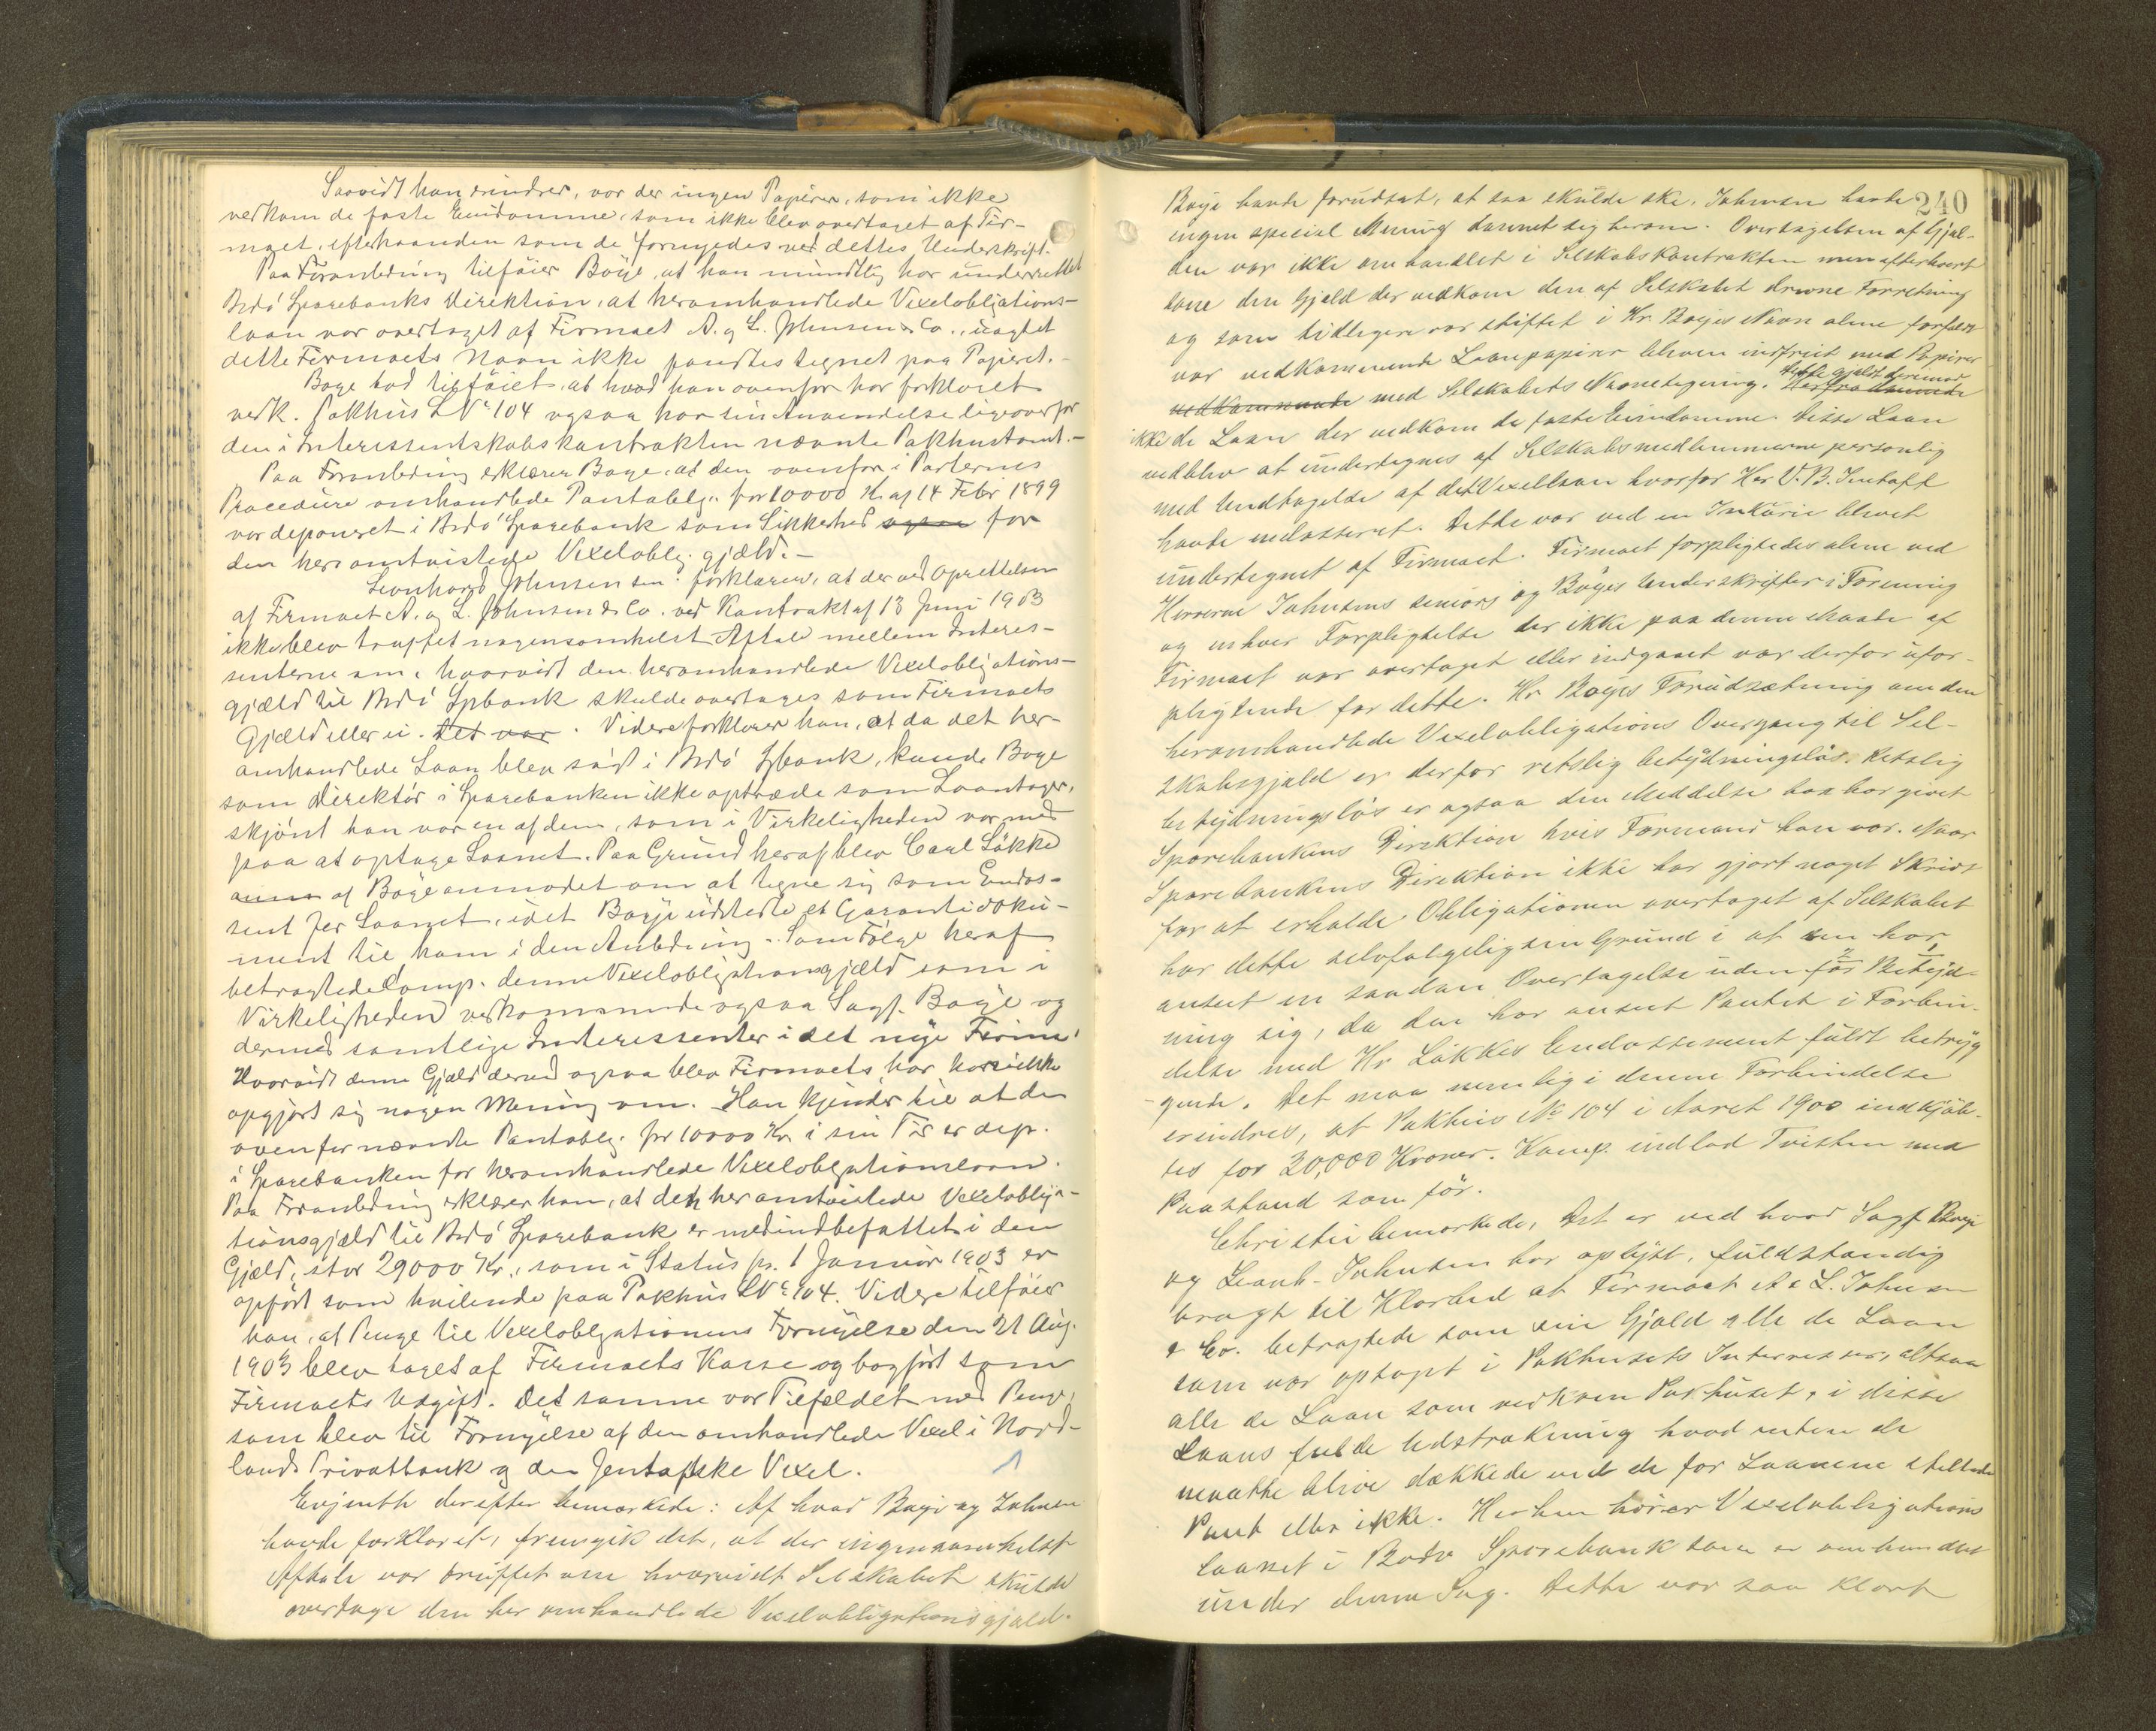 Saavidt han erindrer, var der ingen Papirer, som ikke
vedkom de faste Eiendomme, som ikke blev overtaget af Fir-
maet, efterhaanden som de fornyedes ved dettes Underskrift.
Paa Foranledning tilføier Bøye, at han mundtlig har underrettet
Bodø Sparebanks Direktion, at heromhandlede Vexelobligations-
laan var overtaget af Firmaet A. og L. Johnsen & Co., uagtet
dette Firmaets Navn ikke fandtes tegnet paa Papiret.-
Bøye bad tilføiet, at hvad han ovenfor har forklaret
vedk. Pakhus LNo 104 ogsaa har sin Anvendelse ligeoverfor
den i Interessentskabskontrakten nævnte Pakhustomt.-
Paa Foranledning erklærer Bøye, at den ovenfor i Parternes
Procedure omhandlede Pantoblg. for 10000 Kr. af 14 Febr 1899
var deponeret i Bodø Sparebank som Sikkerhed ogsaa for
den her omtvistede Vexeloblg. gjæld.-
Leonhard Johnsen sen. forklarer, at der ved Oprettelsen
af Firmaet A. og L. Johnsen & Co. ved Kontrakt af 13 Juni 1903
ikke blev truffet nogensomhelst Aftale mellem Interes-
senterne om, hvorvidt den heromhandlede Vexelobligations-
gjæld til Bodø Spbank skulde overtages som Firmaets
Gjæld eller ei. Det var. Videre forklarer han, at da det her-
omhandlede Laan blev søgt i Bodø Spbank, kunde Bøye
som Direktør i Sparebanken ikke optræde som Laantager,
skjønt han var en af dem, som i Virkeligheden var med
paa at optage Laanet. Paa Grund heraf blev Carl Løkke
af Bøye anmodet om at tegne sig som Endos-
sent for Laanet, idet Bøye udstedte et Garantidoku-
ment til ham i den Anledning. Som Følge heraf
betragtede Comp. denne Vexelobligationsgjæld som i
Virkeligheden vedkommende ogsaa Sagf. Bøye og
dermed samtlige Interessenter i det nye Firma.
Hvorvidt denne Gjæld derved ogsaa blev Firmaets, har han ikke
opgjort sig nogen Mening om. Han kjender til at den
ovenfor nævnte Pantoblg. for 10000 Kr. i sin Tid er dep.
i Sparebanken for heromhandlede Vexelobligationslaan.
Paa Foranledning erklærer han, at den her omtvistede Vexelobliga-
tionsgjæld til Bodø Sparebank er medindbefattet i den
Gjæld, stor 29000 Kr., som i Status pr. 1 Januar 1903 er
opført som hvilende paa Pakhus LNo 104. Videre tilføier
han, at Penge til Vexelobligationens Fornyelse den 21 Aug.
1903 blev taget af Firmaets Kasse og bogført som
Firmaets Udgift. Det samme var Tilfældet med Penge,
som blev til Fornyelse af den omhandlede Vexel i Nord-
lands Privatbank og den Jentoftske Vexel.
Evjenth derefter bemærkede: Af hvad Bøye og Johnsen
havde forklaret, fremgik det, at der ingensomhelst
Aftale var truffet om hvorvidt Selskabet skulde
overtage den her omhandlede Vexelobligationsgjæld.
240
Bøye havde forudsat, at saa skulde ske. Johnsen havde
ingen speciel Mening dannet sig herom. Overtagelsen af Gjæl-
den var ikke omhandlet i Selskabskontrakten men efterhvert
som den Gjæld der vedkom den af Selskabet drevne Forretning
og som tidligere var stiftet i Hr. Bøyes Navn alene forfaldt
var vedkommende Laanpapirer bleven indfriet med Papirer
vedkommende med Selskabets Navnetegning. Dette gjaldt derimod
ikke de Laan der vedkom de faste Eiendomme. Disse Laan
vedblev at undertegnes af Selskabsmedlemmerne personlig
med Undtagelse af det Vexellaan hvorfor Her V. B. Jentoft
havde endosseret. Dette var ved en Inkurie blevet
undertegnet af Firmaet. Firmaet forpligtedes alene ved
Herrerne Johnsens seniors og Bøyes Underskrifter i Forening
og enhver Forpligtelse der ikke paa denne Maade af
Firmaet var overtaget eller indgaaet var derfor ufor-
pligtende for dette. Hr Bøyes Forudsætning om den
heromhandlede Vexelobligations Overgang til Sel-
skabsgjæld er derfor retslig betydningsløs. Retslig
betydningsløs er ogsaa den Meddelse han har givet
Sparebankens Direktion hvis Formand han var. Naar
Sparebankens Direktion ikke har gjort noget Skridt
for at erholde Obligationen overtaget af Selskabet
har dette selvfølgelig sin Grund i at den har
anseet en saadan Overtagelse uden Betyd-
ning for sig, da den har anseet Pantet i Forbin-
delse med Hr Løkkes Endossement fuldt betryg-
gende. Det maa nemlig i denne Forbindelse
erindres, at Pakhus No 104 i Aaret 1900 indkjøb-
tes for 30,000 Kroner. Komp. indlod Tvisten med
Paastand som før.
Christie bemærkede, Det er ved hvad Sagf Bøye
og Leonh. Johnsen har oplyst, fuldstændig
bragt til Klarhed at Firmaet A & L. Johnsen
& Co. betragtede som sin Gjæld alle de Laan
som var optaget i Pakhusets Interesser, altsaa
alle de Laan som vedkom Pakhuset, i disse
Laans fulde Udstrækning hvad enten de
maatte blive dækkede ved de for Laanene stillede
Pant eller ikke. Herhen hører Vexelobligations
laanet i Bodø Sparebank som er omhandlet
under denne Sag. Dette var saa klart